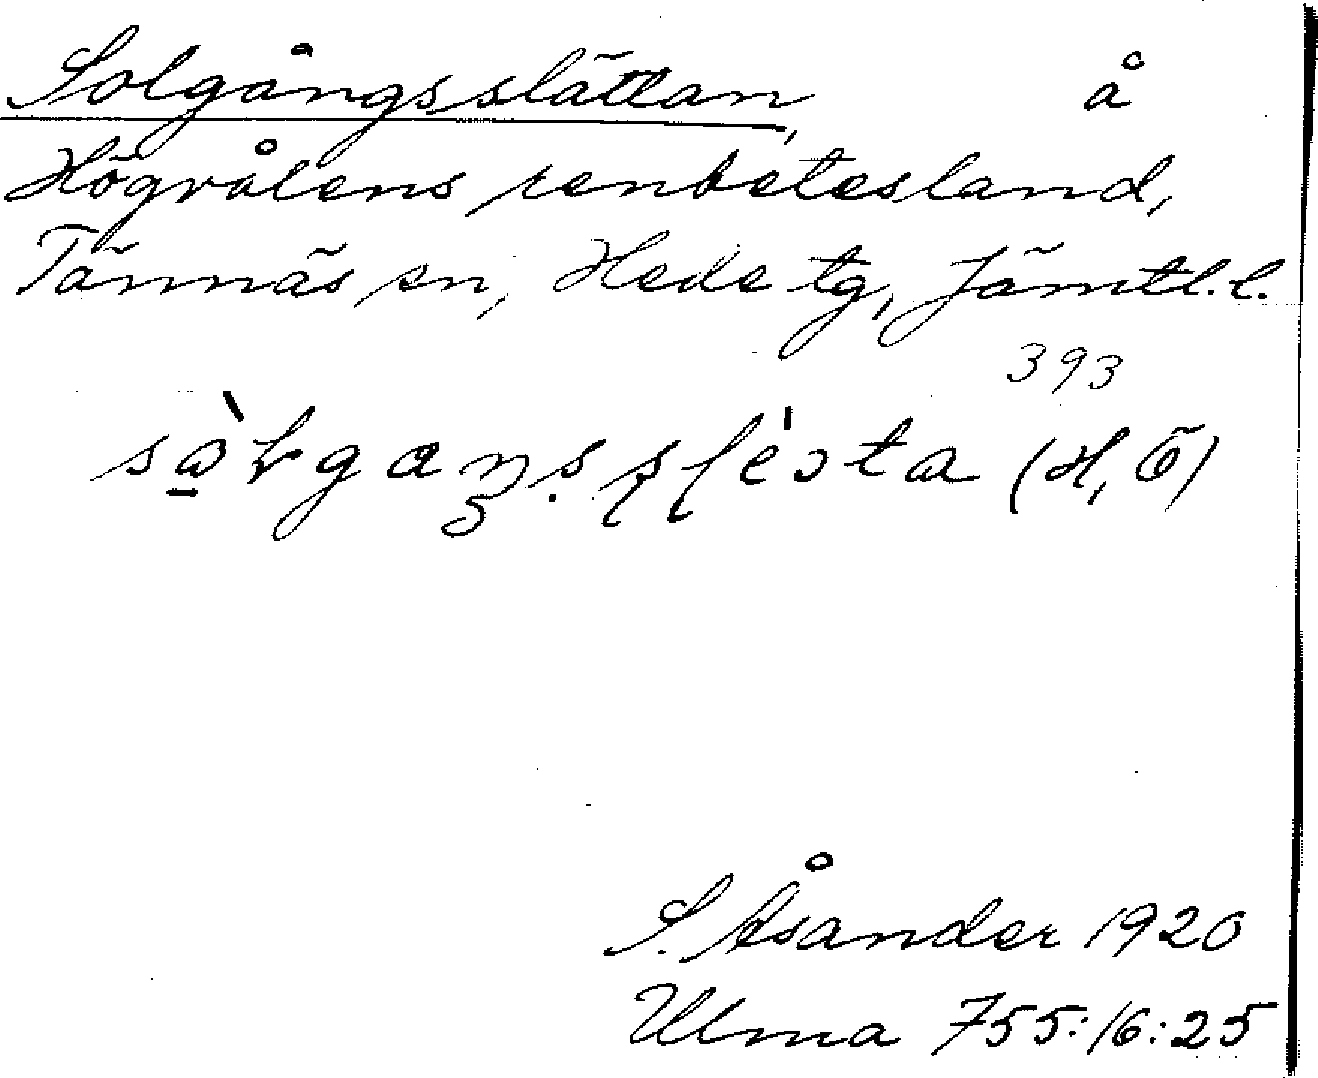 Solgångsslättan, å
Högvålens renbetesland,
Tännäs sn, Hede tg, Jämtl.l.
393
(H, Ö)
S. Åsander 1920
Ulma 755:16:25